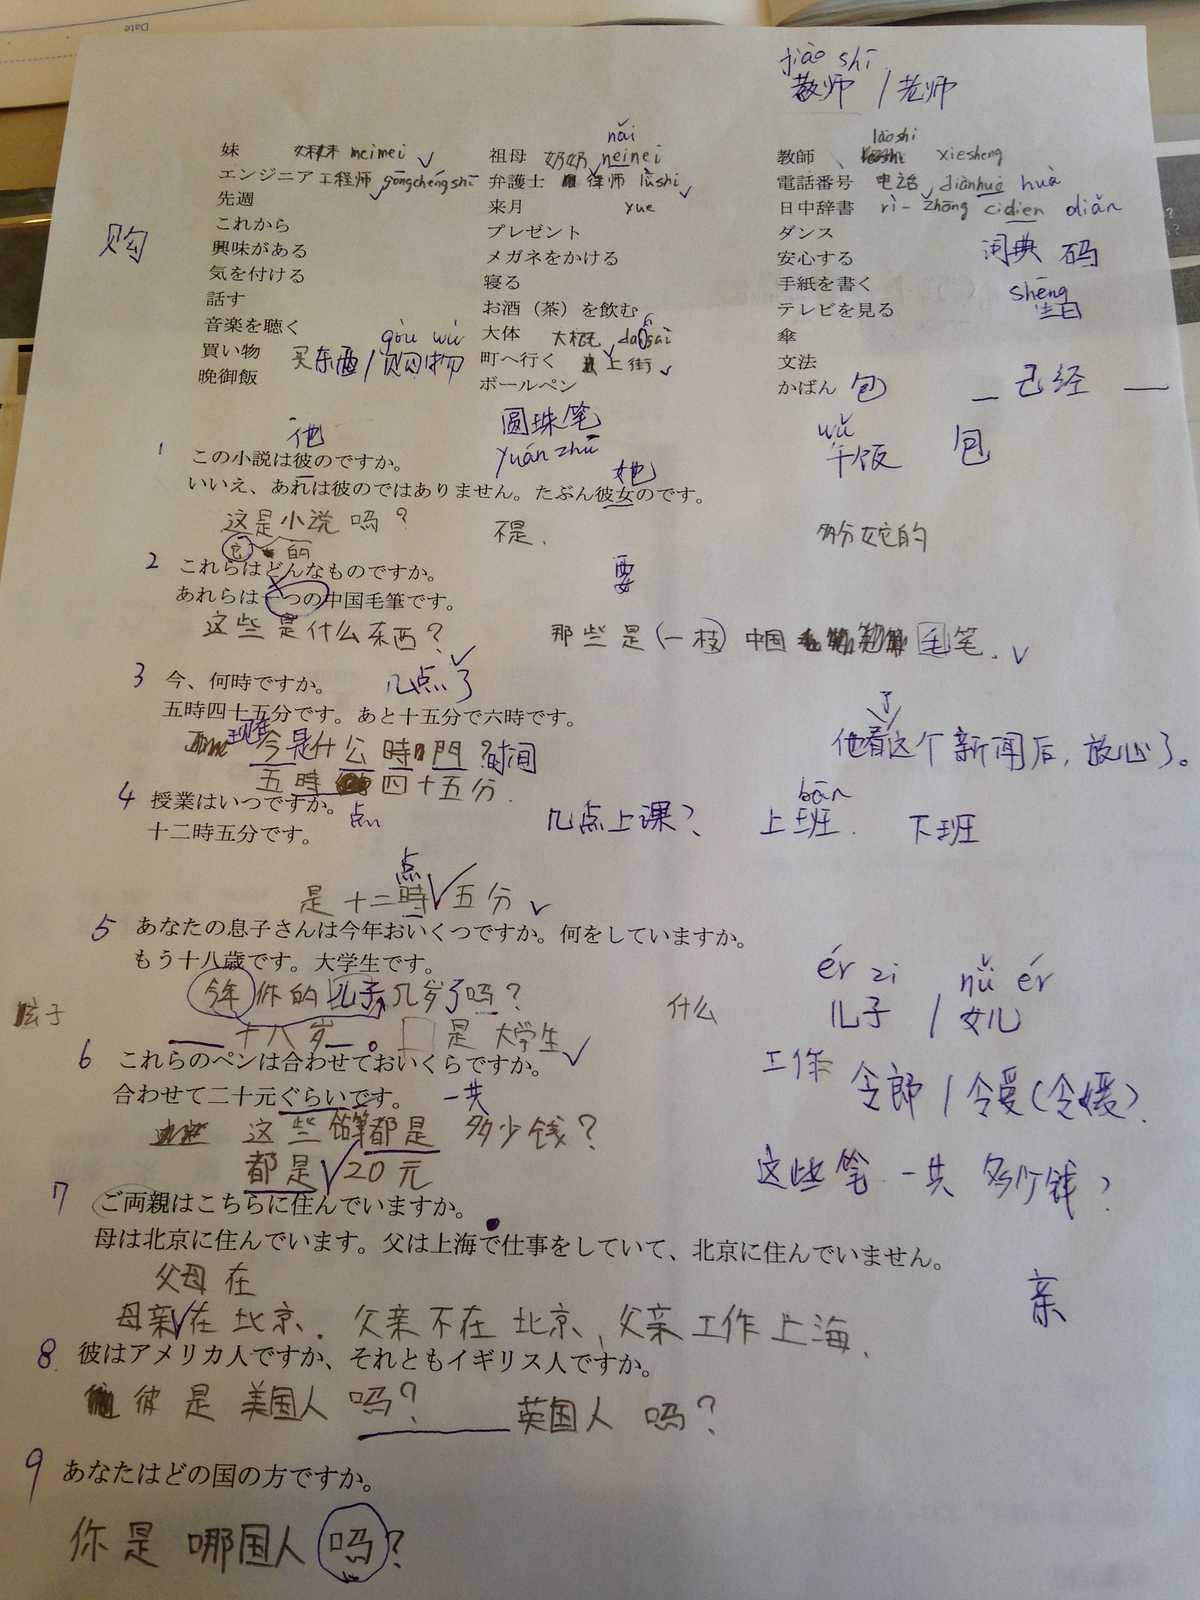 Date
jiào shī
教师 / 老师
妹 妹妹 meimei
祖母 奶奶 neinei nǎi
教師 lǎoshi xiesheng
エンジニア 工程师 gōngchéngshī
弁護士 律师 lǜshi
電話番号 电话 diànhuà huà
先週
来月 yue
日中辞書 rì-zhōng cidien diǎn
これから
プレゼント
ダンス
购
興味がある
メガネをかける
安心する
词典 码
気を付ける
寝る
手紙を書く
shēng
話す
お酒（茶）を飲む
テレビを見る
生日
音楽を聴く
大体 大概
傘
gòu wù
買い物 买东西 / 购物
町へ行く 上街
文法
晩御飯
ボールペン
かばん 包
已经
他
圆珠笔
yuán zhū
wǔ
午饭 包
1 この小説は彼のですか。
她
いいえ、あれは彼のではありません。たぶん彼女のです。
这是小说吗？ 不是. 多分她的
的
2 これらはどんなものですか。
要
あれらは一つの中国毛筆です。
这些是什么东西？ 那些是(一枝)中国 毛笔.
3 今、何時ですか。 几点了
五時四十五分です。あと十五分で六時です。
了
现在 今是什公時門？时间 他看这个新闻后, 放心了。
五時 四十五分.
4 授業はいつですか。
点
bān
几点上课？ 上班. 下班
十二時五分です。
点
是十二時五分
5 あなたの息子さんは今年おいくつですか。何をしていますか。
もう十八歳です。大学生です。
ér zi nǚ ér
今年 你的儿子几岁了吗？ 什么 儿子 / 女儿
十八岁。 是 大学生
6 これらのペンは合わせておいくらですか。
工作 令郎 / 令爱(令媛)
合わせて二十元ぐらいです。 一共
这些 笔都是 多少钱？
都是20元
这些笔 一共 多少钱？
7 ご両親はこちらに住んでいますか。
母は北京に住んでいます。父は上海で仕事をしていて、北京に住んでいません。
父母在
亲
母亲在北京. 父亲不在北京, 父亲工作上海.
8. 彼はアメリカ人ですか、それともイギリス人ですか。
彼是美国人吗？ 英国人吗？
9 あなたはどの国の方ですか。
你是哪国人吗？